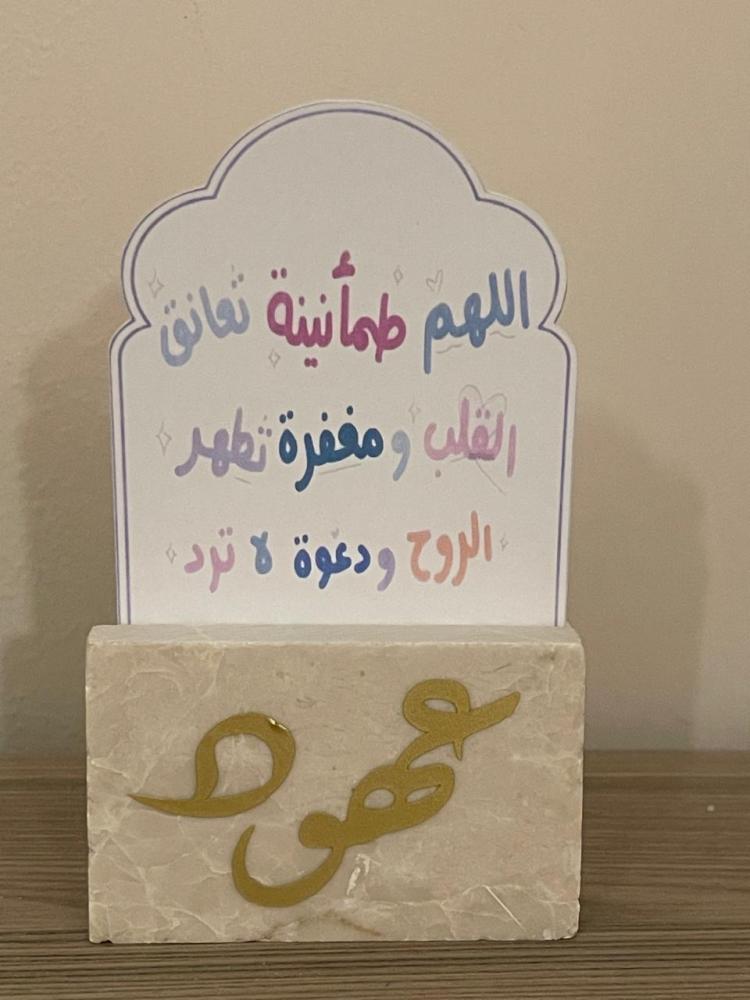 اللهم طمأنينة تعانق
القلب ومغفرة تطهر
الروح ودعوة لا ترد
عهود